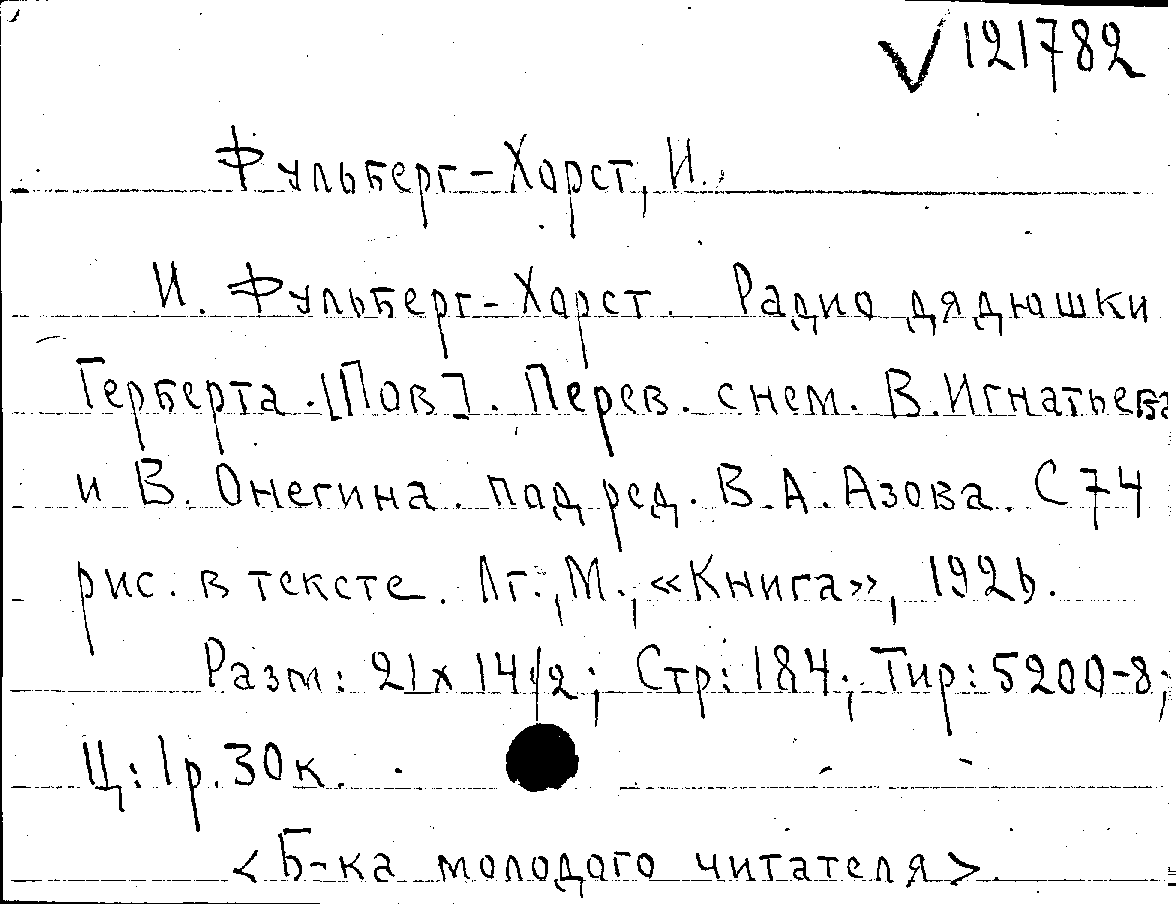 √121782
Фульберг-Хорст, И.
И. Фульберг-Хорст. Радио дядюшки
Герберта. [Пов]. Перев. с нем. В. Игнатьева
и В. Онегина. под ред. В. А. Азова. С 74
рис. в тексте. Лг., М., «Книга», 1926.
Разм: 21x14 1/2; Стр: 184; Тир: 5200-8;
Ц: 1р. 30к.
<Б-ка молодого читателя>.